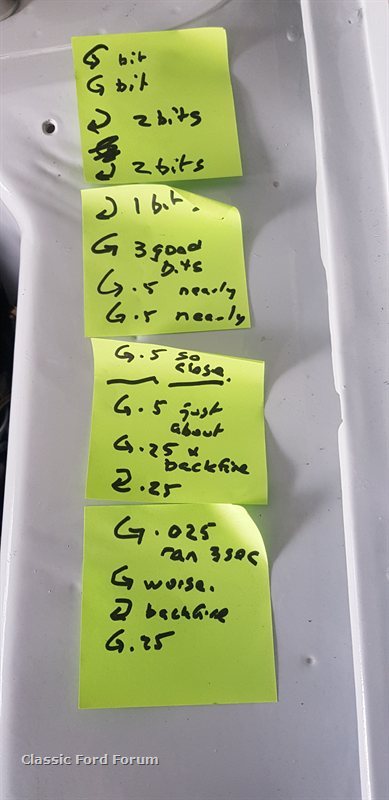 ↶ bit
↶ bit
↷ 2 bits
↷ 2 bits
↷ 1 bit.
↶ 3 good
bits
↶ .5 nearly
↶ .5 nearly
↶ .5 so
close.
↶ .5 just
about
↶ .25 x
backfire
↷ .25
↶ .025
ran 3 sec
↶ worse.
↷ backfire
↶ .25
Classic Ford Forum